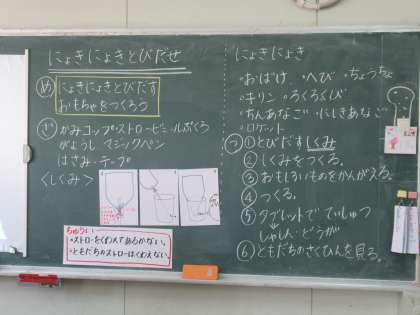 にょきにょきとびだせ
め にょきにょきとびだす
おもちゃをつくろう
かみコップ・ストロー・ビニールぶくろ
がようし マジックペン
はさみ・テープ
<しくみ>
ちゅうい
・ストローをくわえてあるかない。
・ともだちのストローはくわえない。
にょきにょき
・おばけ ・へび ・ちょうちょ
・キリン ・ろくろくび
・ちんあなご ・にしきあなご
・ロケット
つ ①とびだすしくみ
②しくみをつくる。
③おもしろいものをかんがえる。
④つくる。
⑤タブレットで ていしゅつ
しゃしん・どうが
⑥ともだちのさくひんを見る。